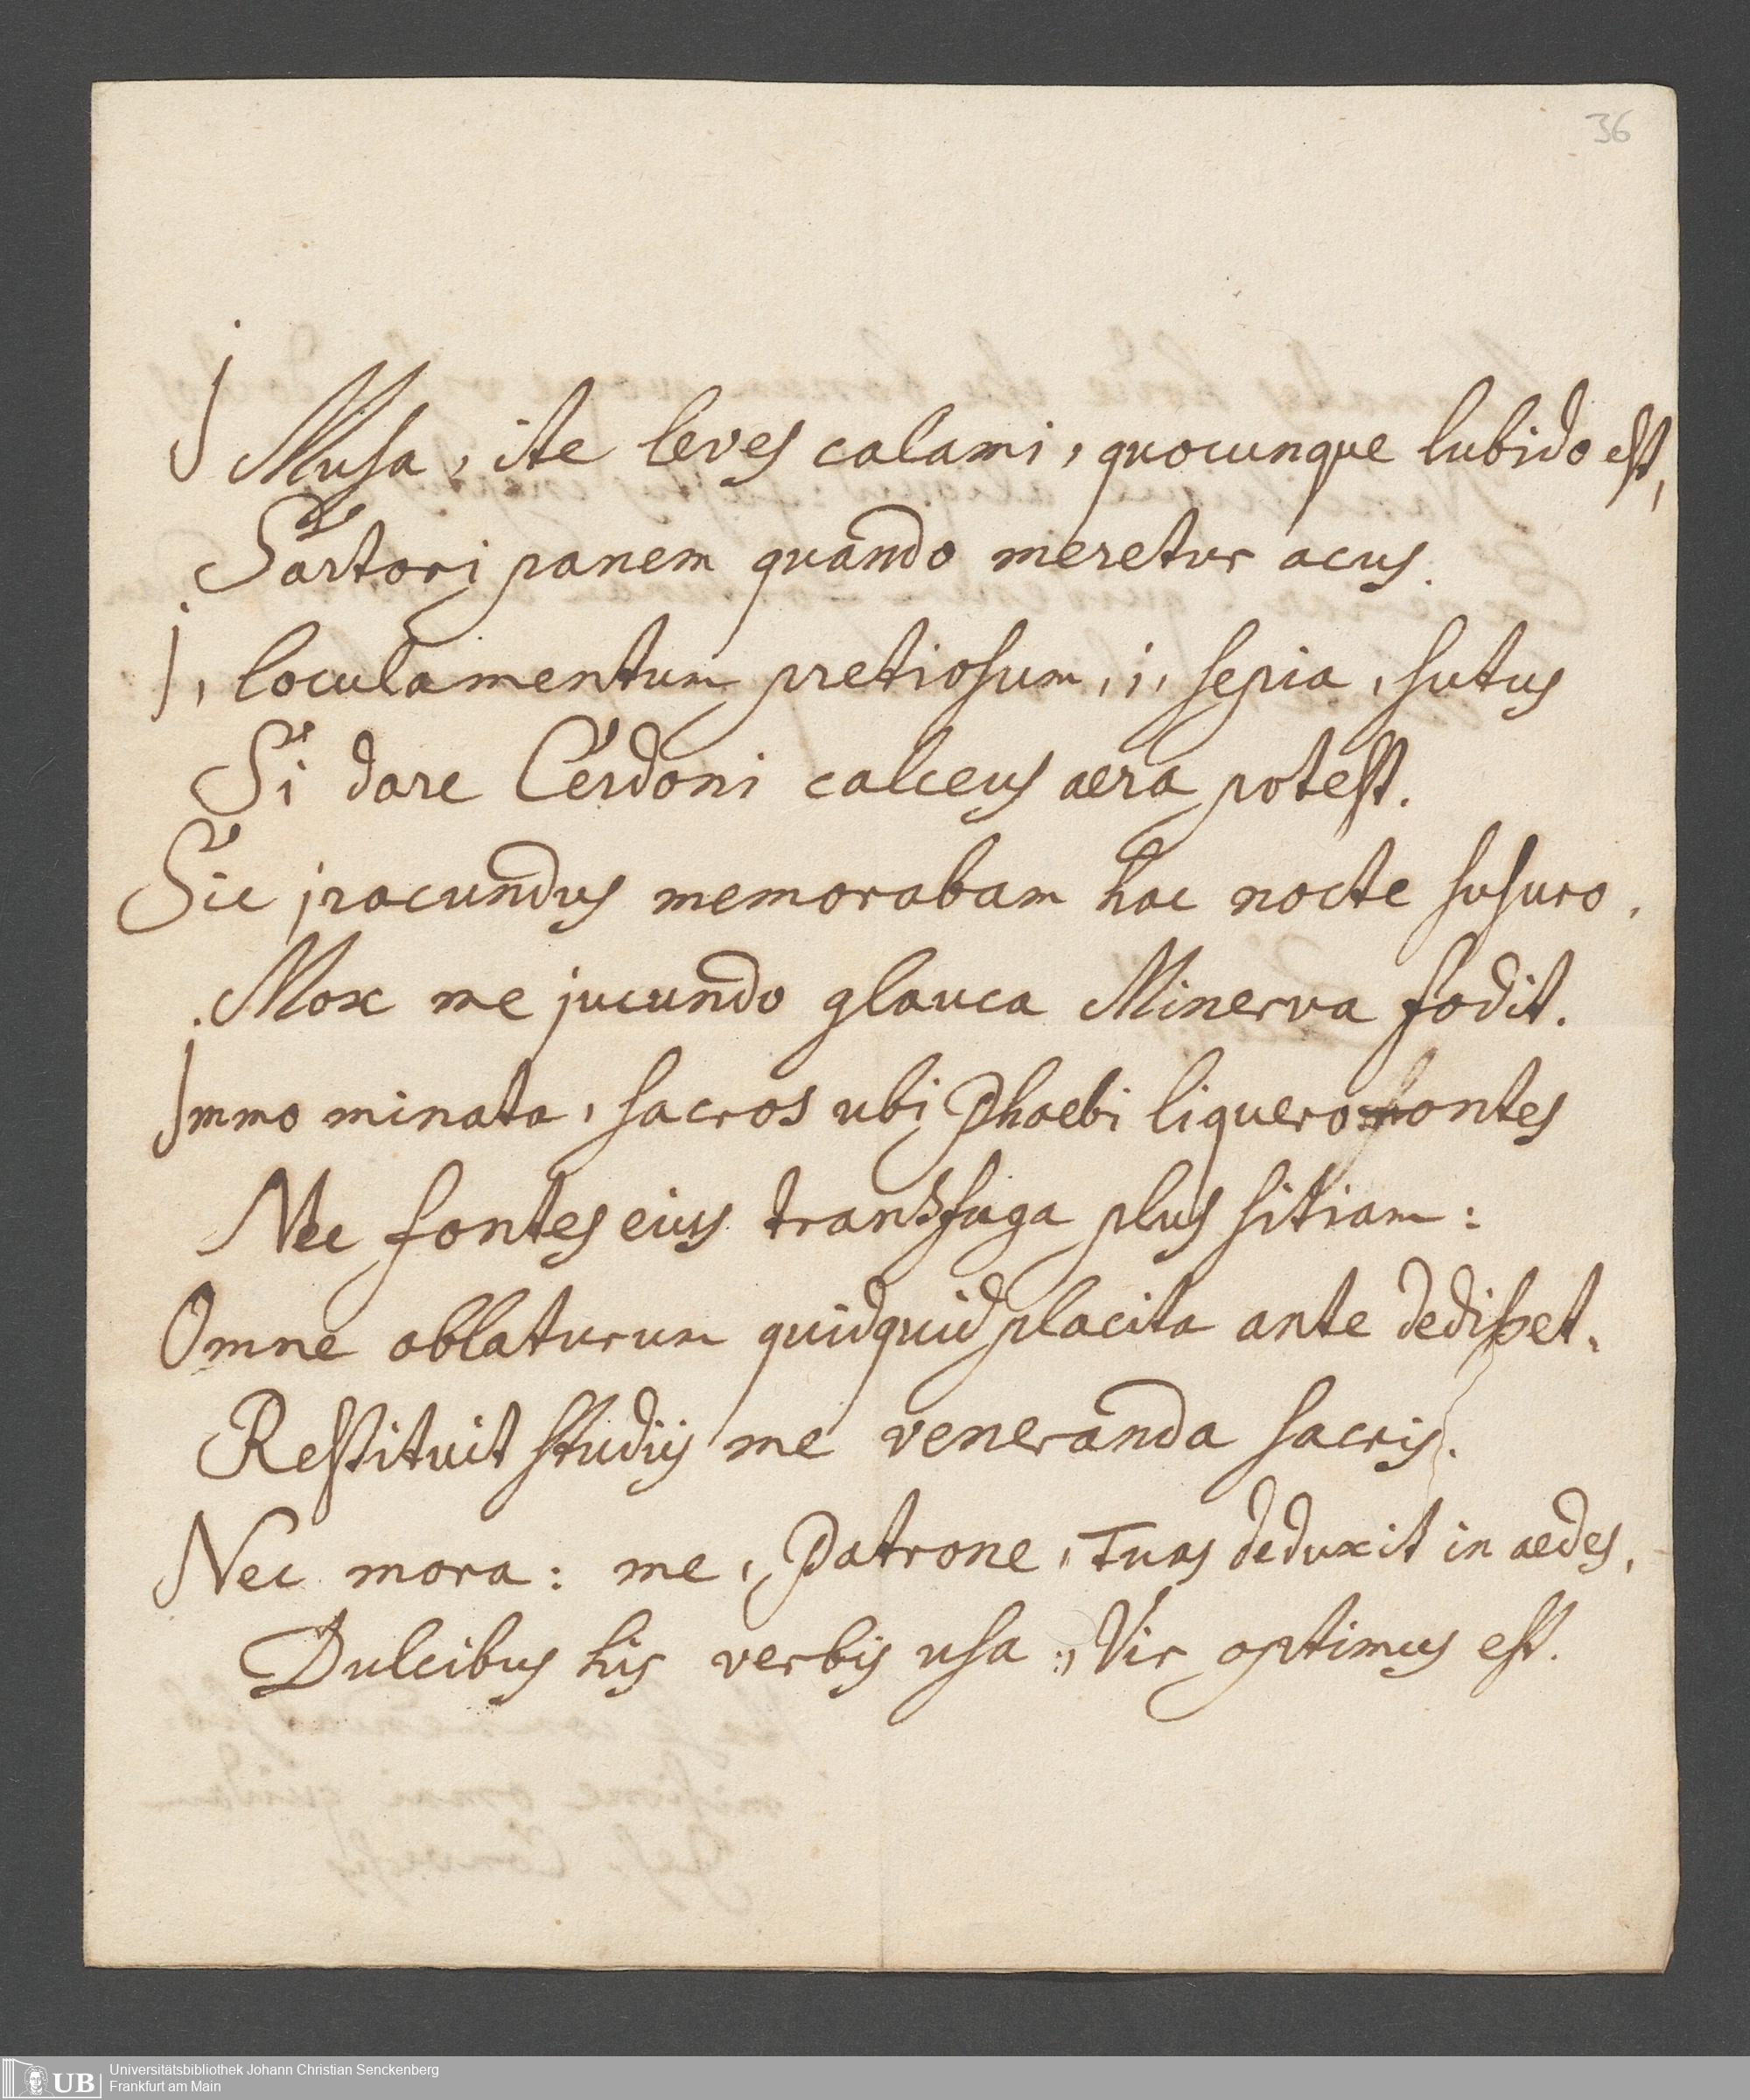 36
I Musa, ite leves calami, quocunque lubido est,
Sartori panem quando meretur acus.
I, loculamentum pretiosum, i, sepia, sutus
Si dare Cerdoni calceus aera potest.
Sic jracundus memorabam hac nocte susuro,
Mox me jucundo glauca Minerva fodit.
Immo minata, sacros ubi Phaebi liquero fontes
Nec fontes eius transfuga plus sitiam:
Omne oblaturum quidquid placita ante dedisset.
Restituit studiis me veneranda sacris.
Nec mora: me, Patrone, Tuas deduxit in aedes,
Dulcibus his verbis usa:, Vir optimus est.
UB Universitätsbibliothek Johann Christian Senckenberg
Frankfurt am Main